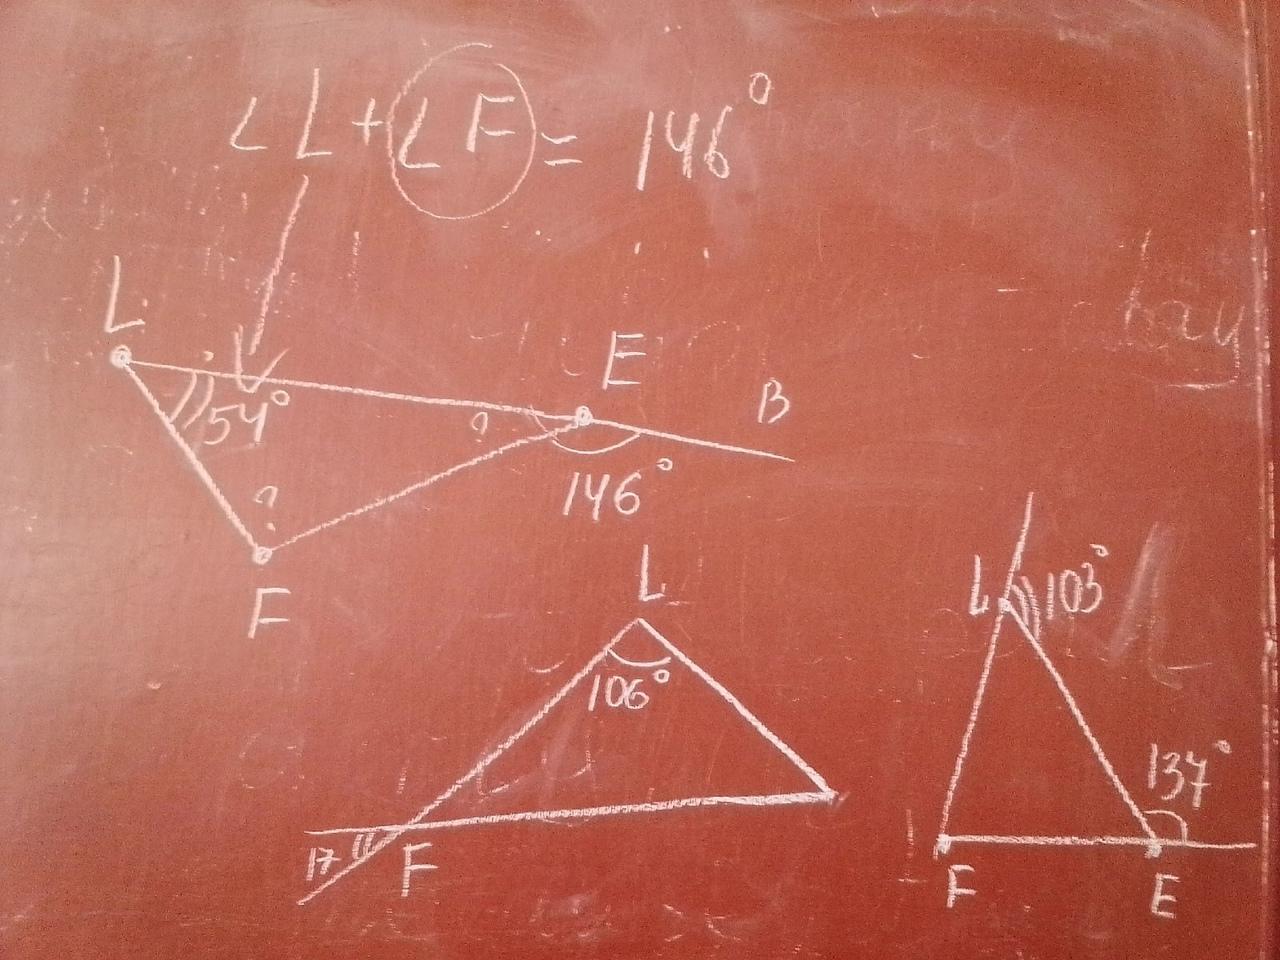 ∠L + ∠F = 146°
L
E
B
54°
?
?
146°
F
L
106°
17
F
L
103°
137°
F
E